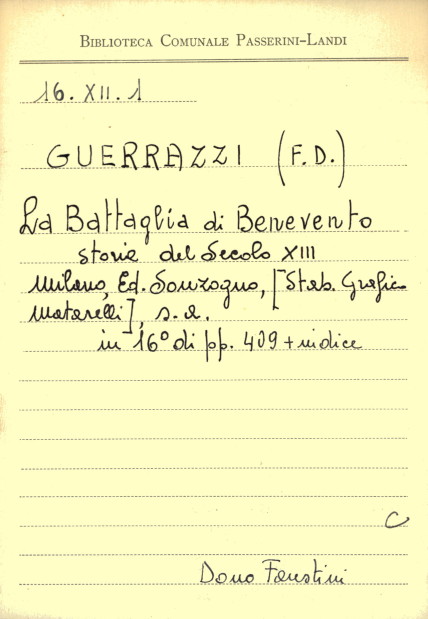 BIBLIOTECA COMUNALE PASSERINI-LANDI
16. XII. 1
GUERRAZZI (F. D.)
La Battaglia di Benevento
storia del Secolo XIII
Milano, Ed. Sonzogno, [Stab. Grafico
Matarelli], s. a.
in 16° di pp. 409 + indice
C
Dono Faustini